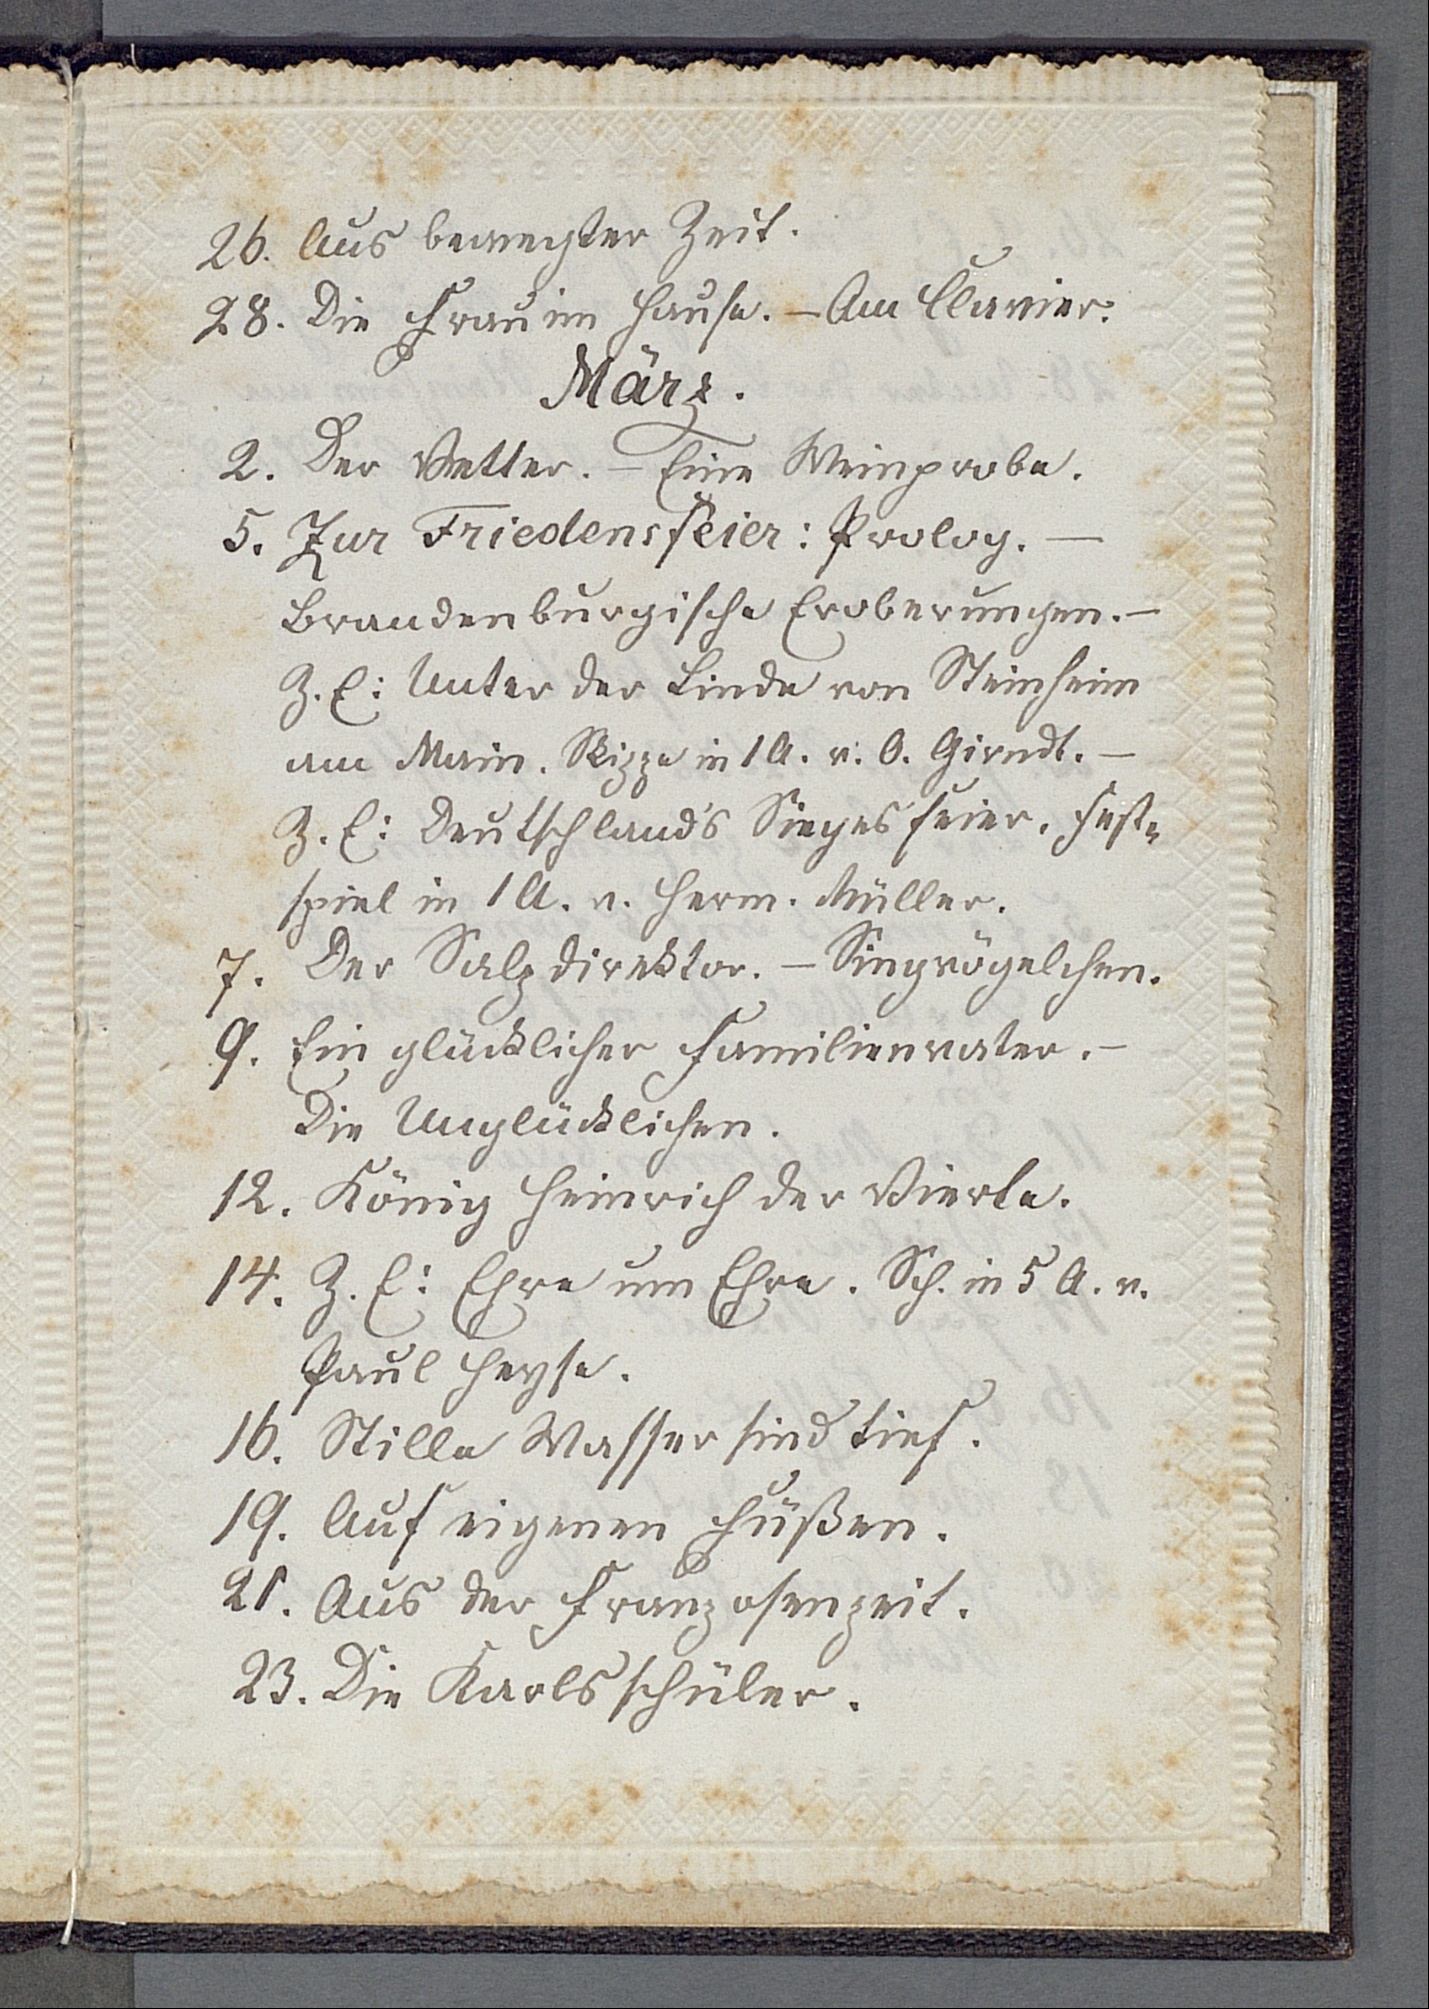 26. Aus bewegter Zeit.
28. Die Frau im Hause. – Am Clavier.
März.
2. Der Vetter. – Eine Weinprobe.
5. Zur Friedensfeier: Prolog. –
Brandenburgische Eroberungen. –
Z. E: Unter der Linde von Steinheim
am Main. Skizze in 1 A. v. O. Girndt. –
Z. E: Deutschland's Siegesfeier. Fest-
spiel in 1 A. v. Herm. Müller.
7. Der Salzdirektor. – Singvögelchen.
9. Ein glücklicher Familienvater. –
Die Unglücklichen.
12. König Heinrich der Vierte.
14. Z. E: Ehre um Ehre. Sch. in 5 A. v.
Paul Heyse.
16. Stille Wasser sind tief.
19. Auf eigenen Füßen.
21. Aus der Franzosenzeit.
23. Die Karlsschüler.